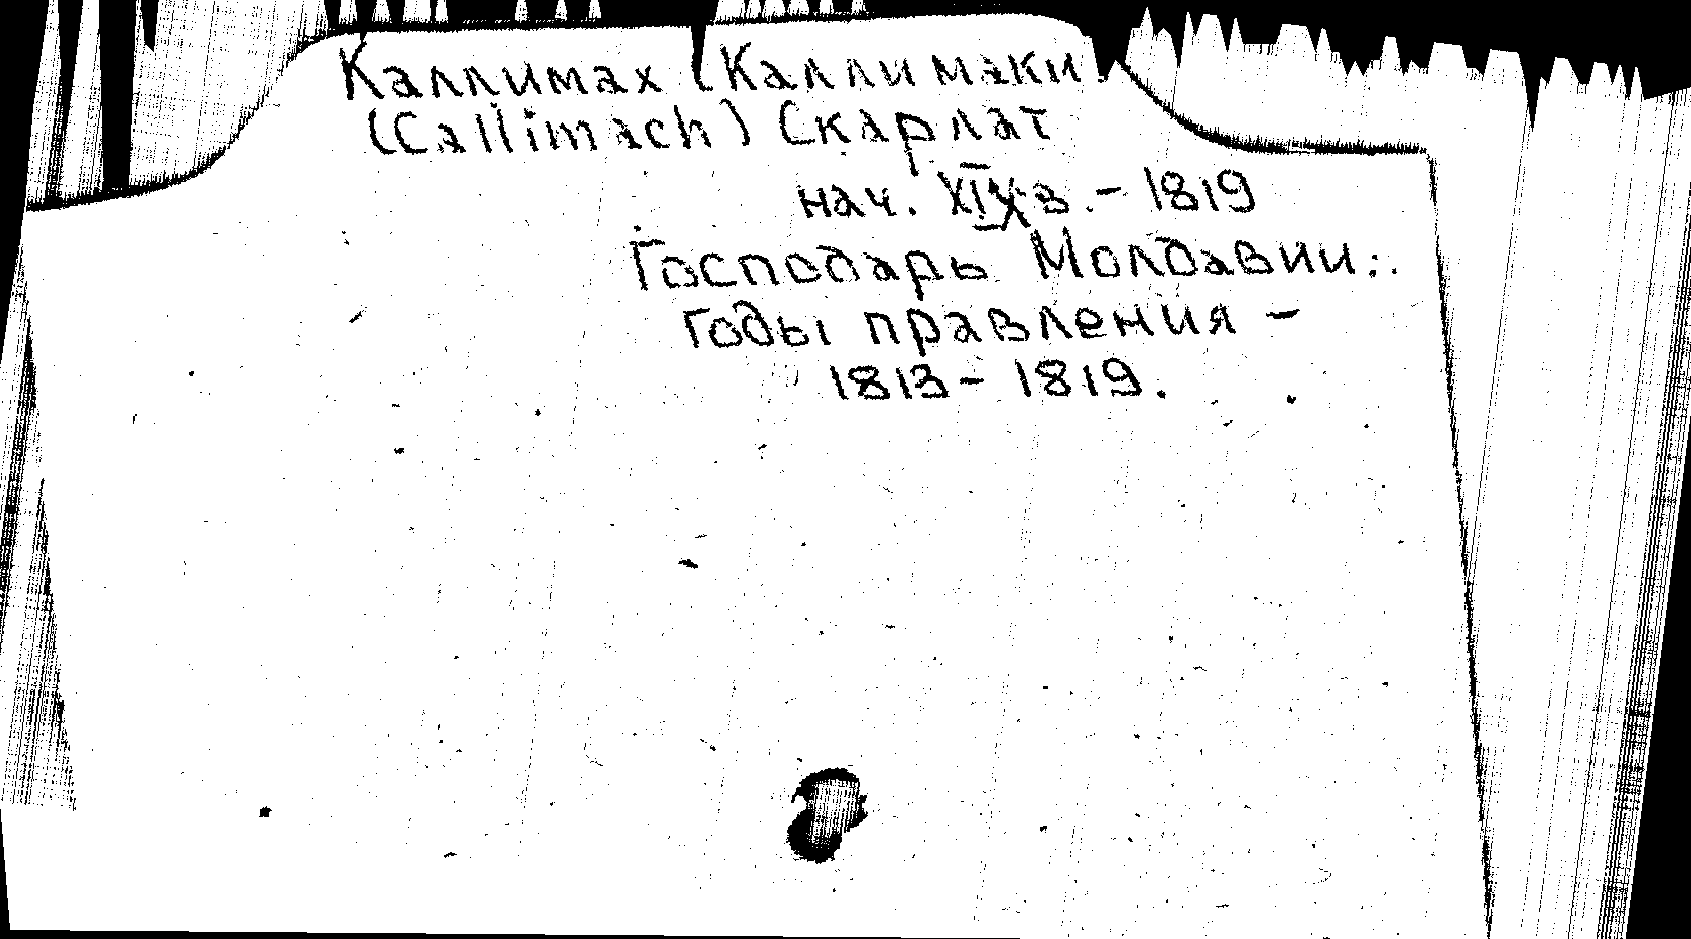 Каллимах (Каллимаки.
(Callimach) Скарлат
нач. XIX в. - 1819
Господарь Молдавии.
Годы правления -
1813 - 1819.